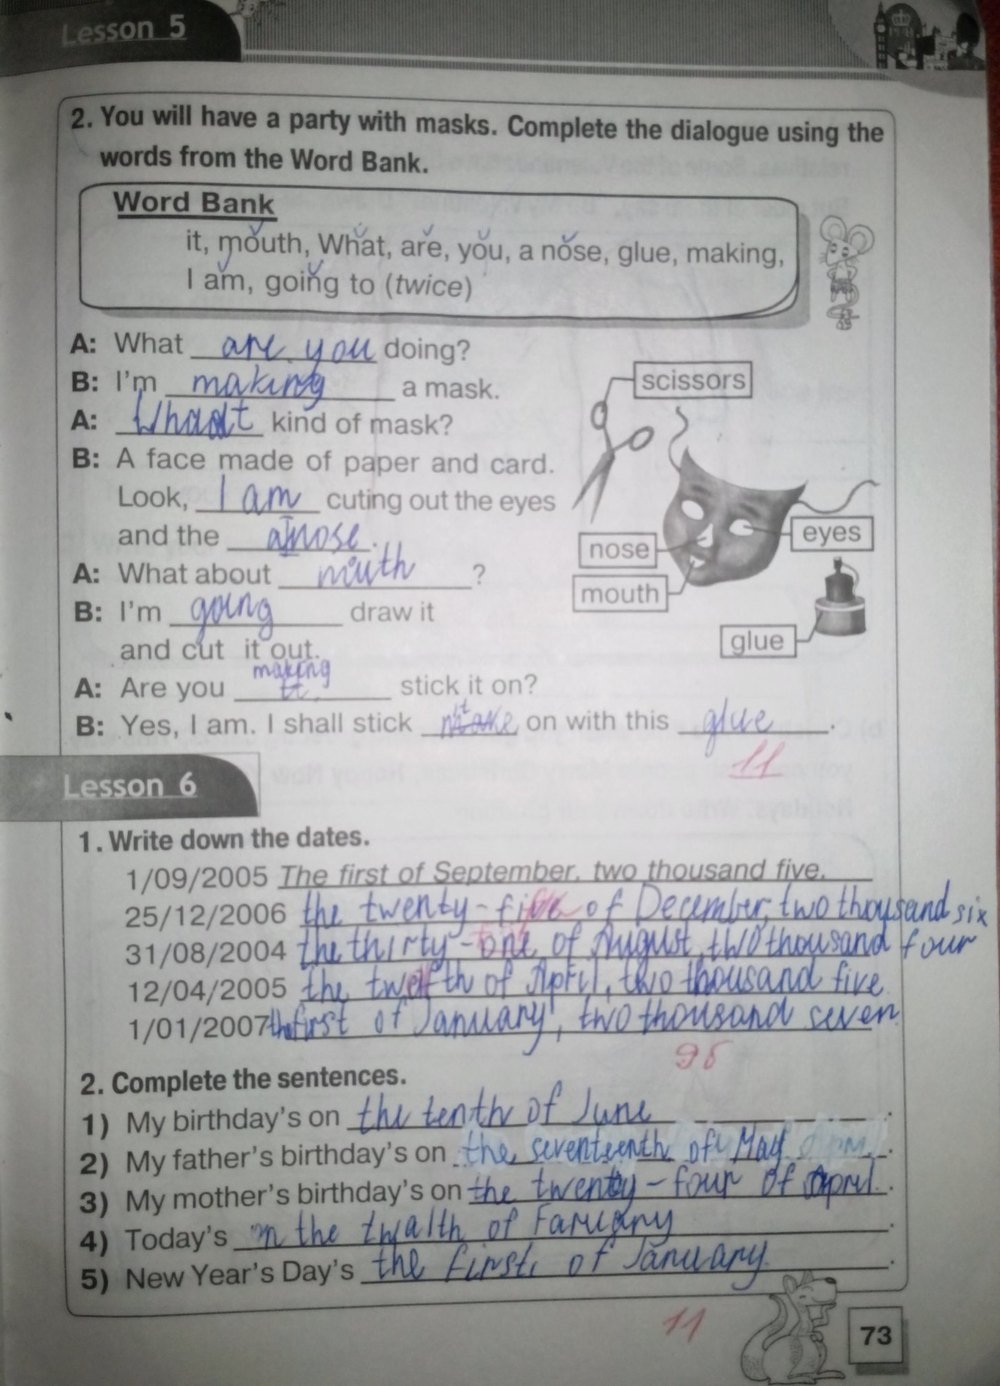 Lesson 5
2. You will have a party with masks. Complete the dialogue using the
words from the Word Bank.
Word Bank
it, mouth, What, are, you, a nose, glue, making,
I am, going to (twice)
A: What are you doing?
B: I'm making a mask.
A: What kind of mask?
B: A face made of paper and card.
Look, I am cuting out the eyes
and the a nose.
A: What about mouth ?
B: I'm going draw it
and cut it out.
A: Are you making stick it on?
B: Yes, I am. I shall stick it on with this glue.
scissors
eyes
nose
mouth
glue
11
Lesson 6
1. Write down the dates.
1/09/2005 The first of September, two thousand five.
25/12/2006 the twenty-five of December, two thousand six
31/08/2004 the thirty-one of August, two thousand four
12/04/2005 the twelfth of April, two thousand five
1/01/2007 the first of January, two thousand seven
9б
2. Complete the sentences.
1) My birthday's on the tenth of June.
2) My father's birthday's on the seventeenth of May.
3) My mother's birthday's on the twenty-four of April.
4) Today's on the twalth of Farugry.
5) New Year's Day's the first of January.
11
73